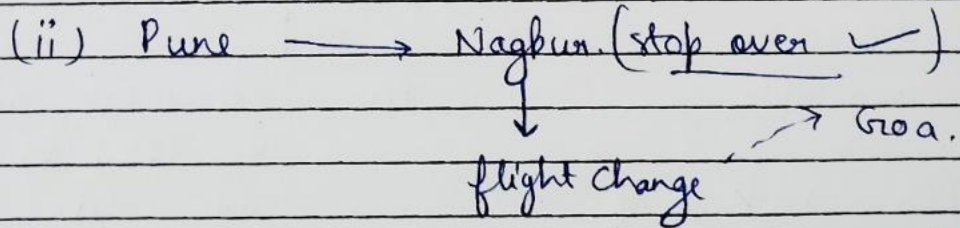 (ii) Pune → Nagpur. (stop over ✓)
Goa.
flight change